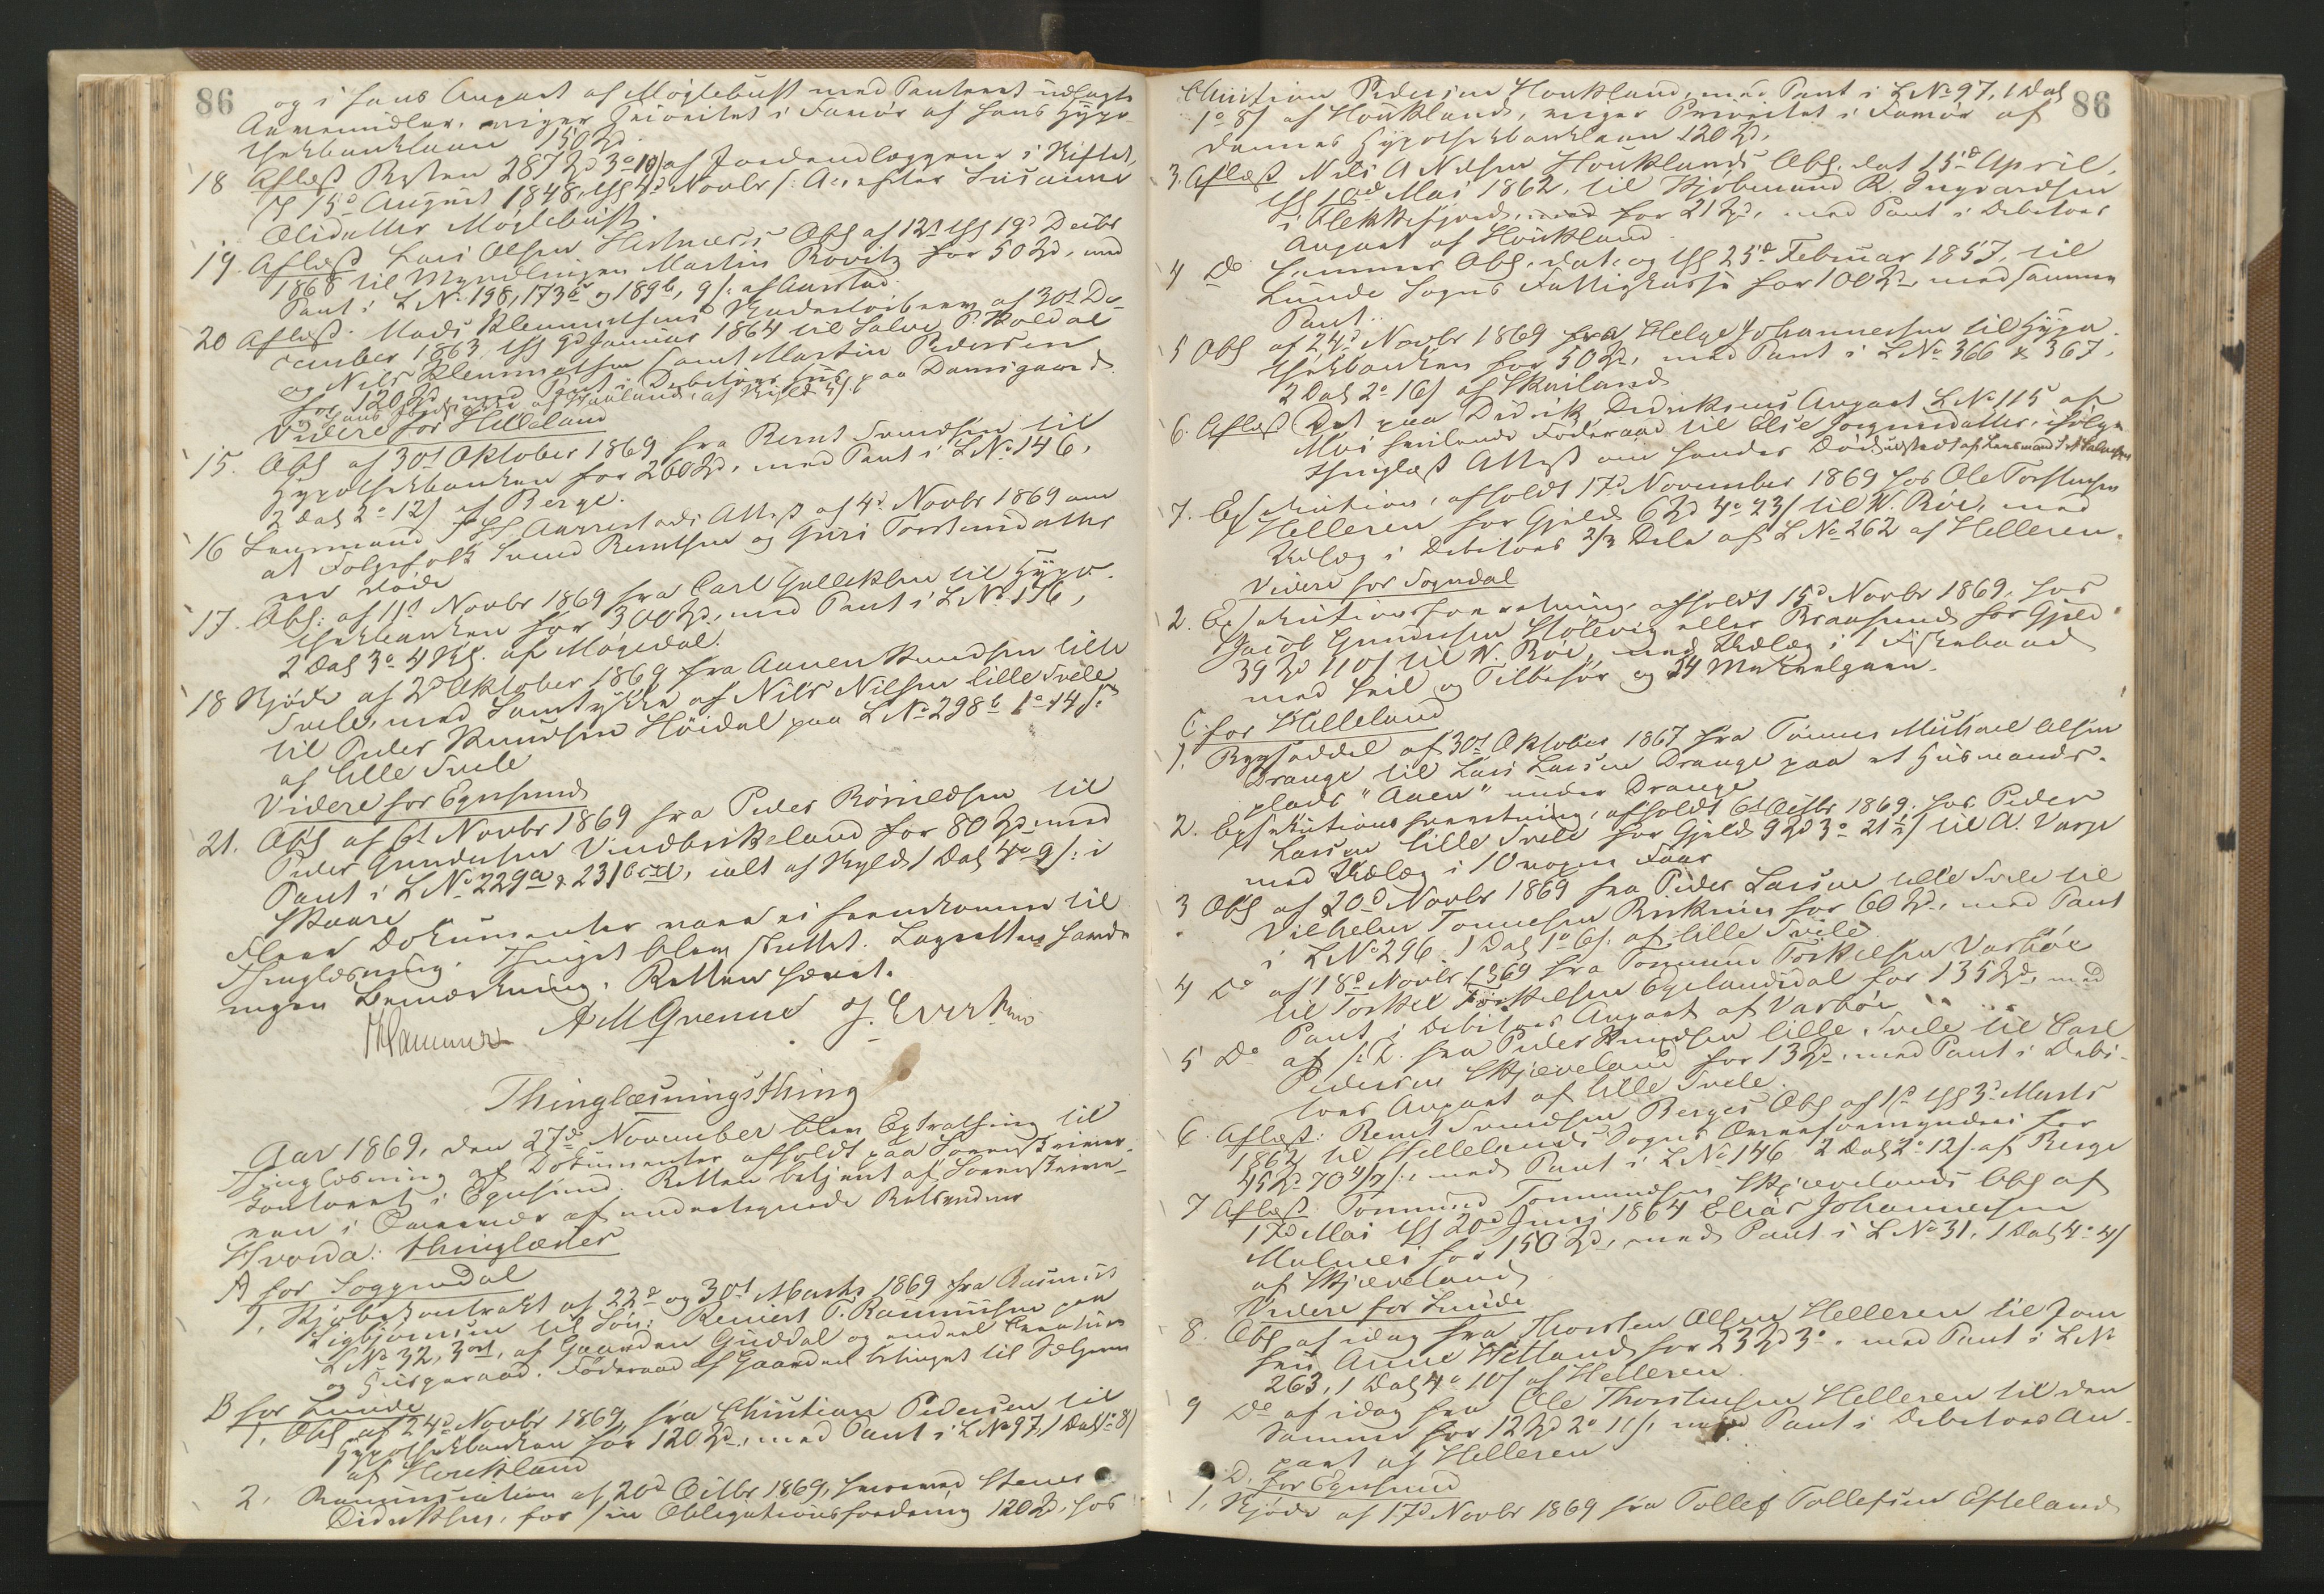 86
og i hans Anpart af Møglebust med Panteret udsagte
Annemidler, viger Prioritet i Favør af hans Hypo-
thekbanklaan 150 Spd.
18 Aflæst Resten 287 Spd 3 o 10 s af Jordudlæggene i Skiftet,
15d August 1848, thgl 4d Novbr s: A: efter Susanne
Olidatter Møglebust.
19. Aflæst Lars Olsen Hestnæss Obl af 12t thgl 19d Decbr
1868 til Myndlingen Martin Rovitz for 50 Spd, med
Pant i L No 198, 173b og 189b, 9 s: af Aarstad.
20 Aflæst. Mads Klemmetsens Pantebrev af 30t De-
cember 1863, thgl 9d Januar 1864 til Salve P. Koldal
og Nils Klemmetsen samt Martin Pedersen
for 120 Spd, med Pant i Debitors Huus paa Damsgaard
Videre for Helleland
15. Obl af 30t Oktober 1869 fra Bernt Svendsen til
Hypothekbanken for 260 Spd, med Pant i L No 146,
2 Dal 2 o 12 s af Berge.
16 Lensmand Aarrestads Attest af 4d Novbr 1869 om
at Folgefolk Svend Berntsen og Guri Torstensdatter
ere døde
17. Obl: af 11t Novbr 1869 fra Carl Gulleksen til Hypo-
thekbanken for 300 Spd, med Pant i L No 156,
2 Dal 3 o 4 s. af Møgedal.
18 Skjøde af 2d Oktober 1869 fra Aanen Knudsen lille
Svele, med Samtykke af Nils Nilsen lille Svele
til Peder Knudsen Høidal paa L No 298b 1 o 14 s:
af lille Svele
Videre for Egersund
21. Obl af 6t Novbr 1869 fra Peder Børildsen til
Peder Gundersen Vindbirkeland for 80 Spd med
Pant i L No 229a & 231, ialt af Skyld 1 Dal 4 o 9 s: i
Skaare
Flere Dokumenter vare ei fremkomne til
Thinglæsning. Thinget blev sluttet. Lagretten havde
ingen Bemærkning. Retten hævet.
Hammer A M Grennes J. Evertsen
Thinglæsningsthing
Aar 1869, den 27d November blev Extrathing til
Thinglæsning af Dokumenter afholdt paa Sorenskriver-
kontoret i Egersund. Retten betjent af Sorenskrive-
ren i Overvær af undertegnede Retsvidner
Hvorda: thinglæstes
A for Soggendal
1. Kjøbekontrakt af 22d og 30t Marts 1869 fra Rasmus
Sigbjørnsen til Søn: Reinert T. Rasmussen paa
L No 32, 3 ort, af Gaarden Guddal og endeel Creaturer
og Husgeraad. Føderaad af Gaarden betinget til Sælgeren
B for Lunde
1. Obl af 24d Novbr 1869 fra Christian Pedersen til
Hypothekbanken for 120 Spd, med Pant i L No 97, 1 Dal 1 o 8 s
af Houkland
2. Renunciation af 20d Octbr 1869, hvorved Stener
Didriksen, for sin Obligationsfordring 120 Spd, hos
86
Christian Pedersen Houkland, med Pant i L No 97, 1 Dal
1 o 8 s af Houkland, viger Prioritet i Favør af
dennes Hypothekbanklaan 120 Spd.
3. Aflæst Nils A Nilsen Houklands Obl. dat 15d April,
thgl 10d Mai 1862, til Kjøbmand R. Ingvardsen
i Flekkefjord, med for 21 Spd, med Pant i Debitors
Anpart af Houkland
4 Do Sammes Obl. dat. og thgl 25d Februar 1857, til
Lunde Sogns Fattigkasse for 100 Spd, med samme
Pant.
5 Obl af 24d Novbr 1869 fra Helge Johannesen til Hypo-
thekbanken for 50 Spd, med Pant i L No 366 & 367,
2 Dal 2 o 16 s af Skailand
6. Aflæst Det paa Didrik Didriksens Anpart L No 115 af
Moi hvilende Føderaad til Else Jorgensdatter, ifølge
thinglæst Attest om hendes Død
7. Exekution, afholdt 17d November 1869 hos Ole Torstensen
Helleren for Gjeld 6 Spd 4 o 23 s til W. Röe, med
Udlæg i Debitors 2/3 Dele af L No 262 af Helleren.
Videre for Sogndal
2. Exekutionsforretning, afholdt 15d Novbr 1869, hos
Jacob Gundersen Stølevig eller Braasund for Gjeld
39 Spd 110 s til W. Röe, med Udlæg i 1 Fiskebaad
med Seil og Tilbehør og 14 Makrelgarn.
C. for Helleland
1. Bygseddel af 30t Oktober 1867 fra Tønnes Michael Olsen
Drange til Lars Larsen Drange paa et Husmands-
plads "Aaen" under Drange
2. Exekutionsforretning, afholdt 6t Octbr 1869, hos Peder
Larsen lille Svele for Gjeld 9 Spd 3 o 21 s til A. Varpe
med Udlæg i 10 voxne Faar
3 Obl af 20d Novbr 1869 fra Peder Larsen lille Svele til
Vilhelm Tonnesen Birkrem for 60 Spd, med Pant
i L No 296. 1 Dal 1 o 6 s. af lille Svele
4 Do af 18d Novbr 1869 fra Tommen Torkelsen Varhöe
til Torkel Torkelsen Egelandsdal for 135 Spd, med
Pant i Debitors Anpart af Varhöe
5 Do af s: D. fra Peder Knudsen lille Svele til Carl
Pedersen Skjeveland for 13 Spd, med Pant i Debi-
tors Anpart af lille Svele.
6. Aflæst: Bernt Svendsen Berges Obl af 1d thgl 3d Marts
1862 til Hellelands Sogns Overformynderi for
45 Spd 70 4/7 s:, med Pant i L No 146 2 Dal 2 o 12 s. af Berge
7 Aflæst. Tommund Tommundsen Skjævelands Obl af
17d Mai thgl 20d Juni 1864 Elias Johannesen
Malmei for 150 Spd, med Pant i L No 31, 1 Dal 4 o 4 s
af Skjæveland
Videre for Lunde
8. Obl af idag fra Thorsten Olsen Helleren til Jom
fru Anne Hetland for 23 Spd 3 o. med Pant i L No
263, 1 Dal 4 o 10 s af Helleren
9 Do af idag fra Ole Thorstensen Helleren til den
Samme for 12 Spd 2 o 11 s, med Pant i Debitors An-
part af Helleren
D. for Egersund
1. Skjøde af 17d Novbr 1869 fra Tollef Tollefsen Efteland